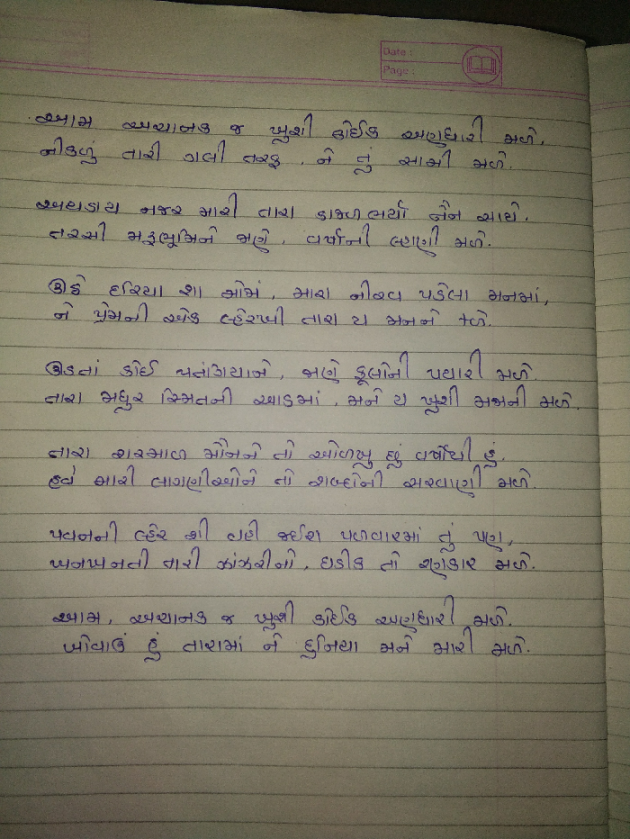 Date :
Page :
આમ અચાનક જ ખુશી કોઈક અણધારી મળે,
નીકળું તારી ગલી તરફ, ને તું સામી મળે.
અથડાય નજર મારી તારા કાજળભર્યા નૈન સાથે,
તરસી મરુભૂમિને જાણે, વર્ષાની લ્હાણી મળે.
ઊઠે દરિયા શા મોજાં, મારા નીરવ પડેલા મનમાં,
ને પ્રેમની એક લ્હેરખી તારા ય મનને મળે.
ઊડતાં કોઈ પતંગિયાને, જાણે ફૂલોની પથારી મળે
તારા મધુર સ્મિતની આડમાં, મને ય ખુશી મજાની મળે.
તારા શરમાળ મૌનને તો ઓળખુ છું વર્ષોથી હું,
હવે મારી લાગણીઓને તો શબ્દોની સરવાણી મળે.
પવનની લ્હેર શી વહી જઈશ પળવારમાં તું પણ,
ખનખનતી તારી ઝાંઝરીનો, ઘડીક તો રણકાર મળે.
આમ, અચાનક જ ખુશી કોઈક અણધારી મળે.
ખોવાઉં હું તારામાં ને દુનિયા મને મારી મળે.